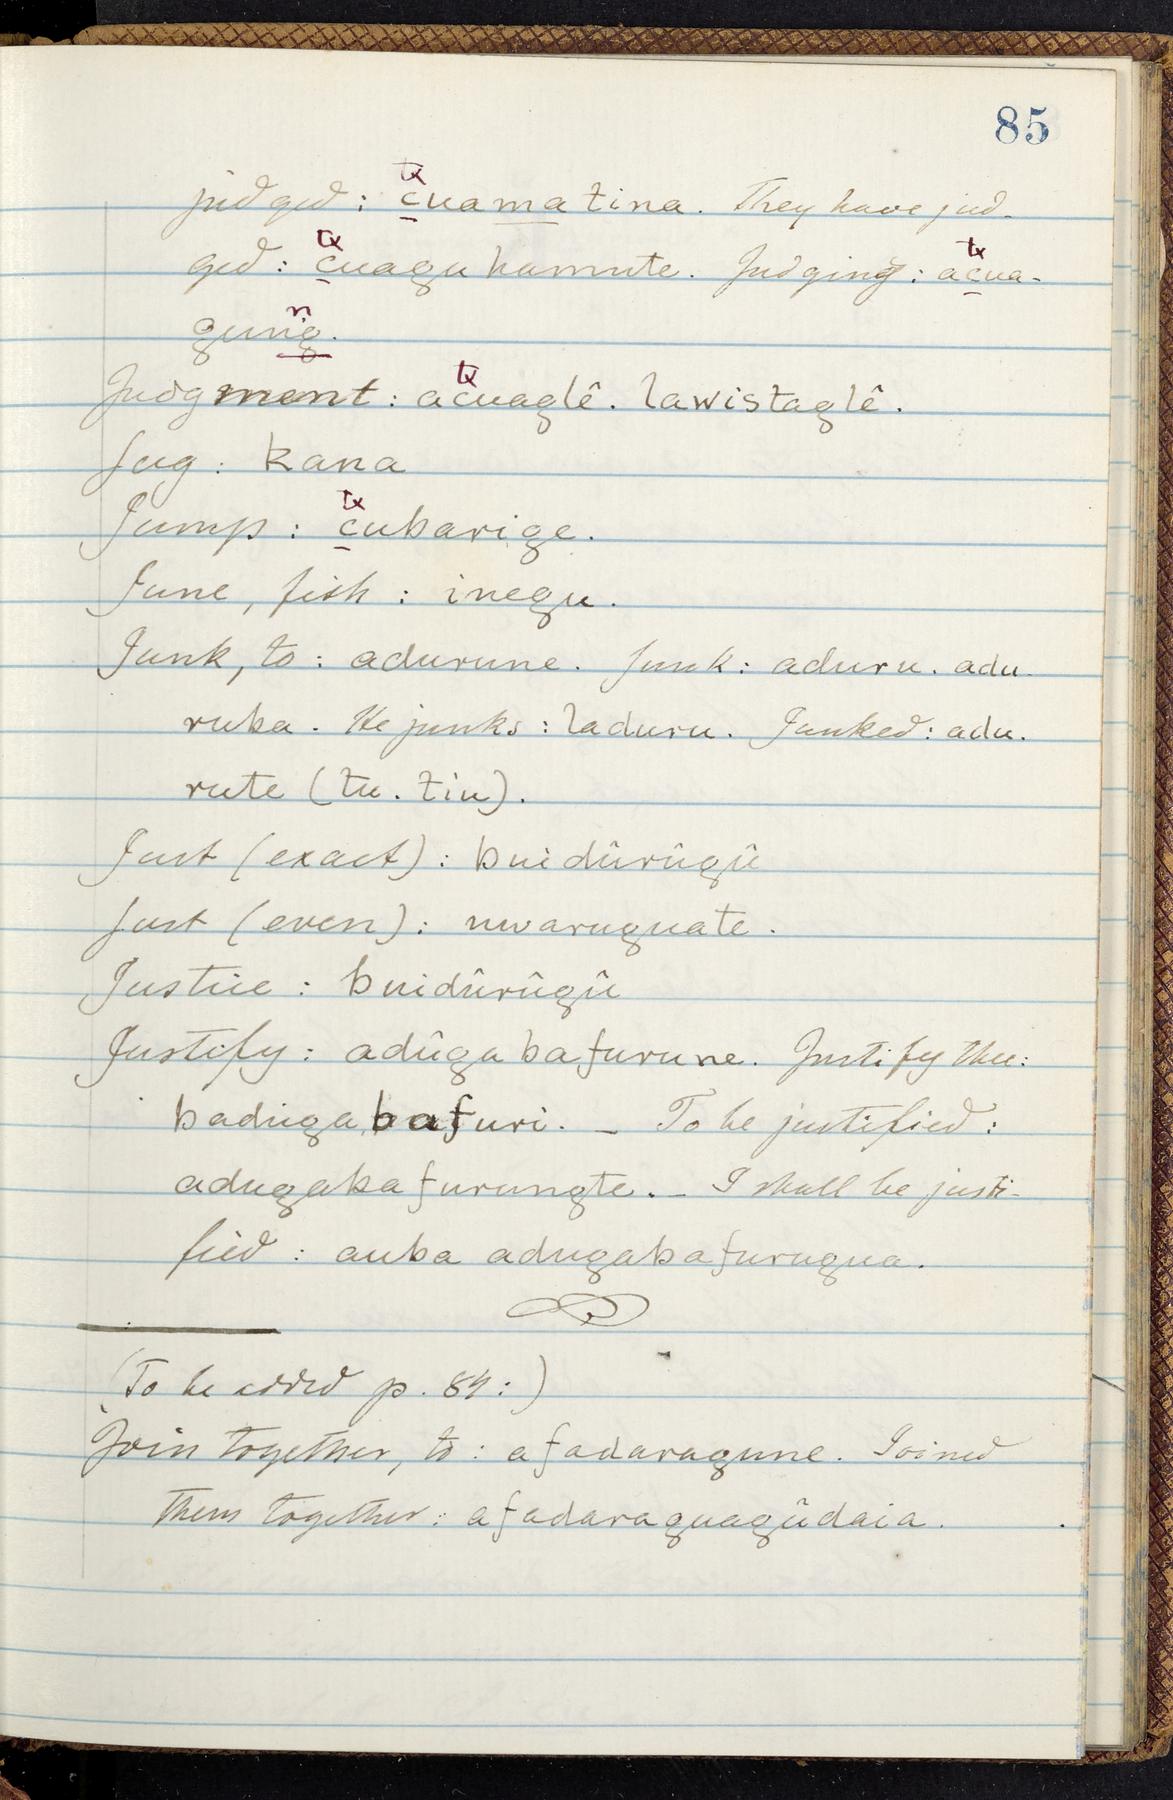 85
judged : c̱uamatina. They have jud-
tx
ged : c̱uaguhamute. Judging : ac̱ua-
tx tx
gunig.
n
Judgment : acuaglê. lawistaglê.
tx
Jug : kana
Jump : c̱ubarige.
tx
June, fish : inegu.
Junk, to : adurune. Junk : aduru. adu-
ruba. He junks : laduru. Junked : adu-
rute (tu. tiu).
Just (exact) : buidûrûgû
Just (even) : nwaruguate.
Justice : buidûrûgû
Justify : adûgabafurune. Justify thee :
badugabafuri. _ To be justified :
adugabafurungte. _ I shall be justi-
fied : auba adugabafurugua.
(To be added p. 84 :)
Join together, to : afadaragune. Joined
them together : afadaraguagûdaia.